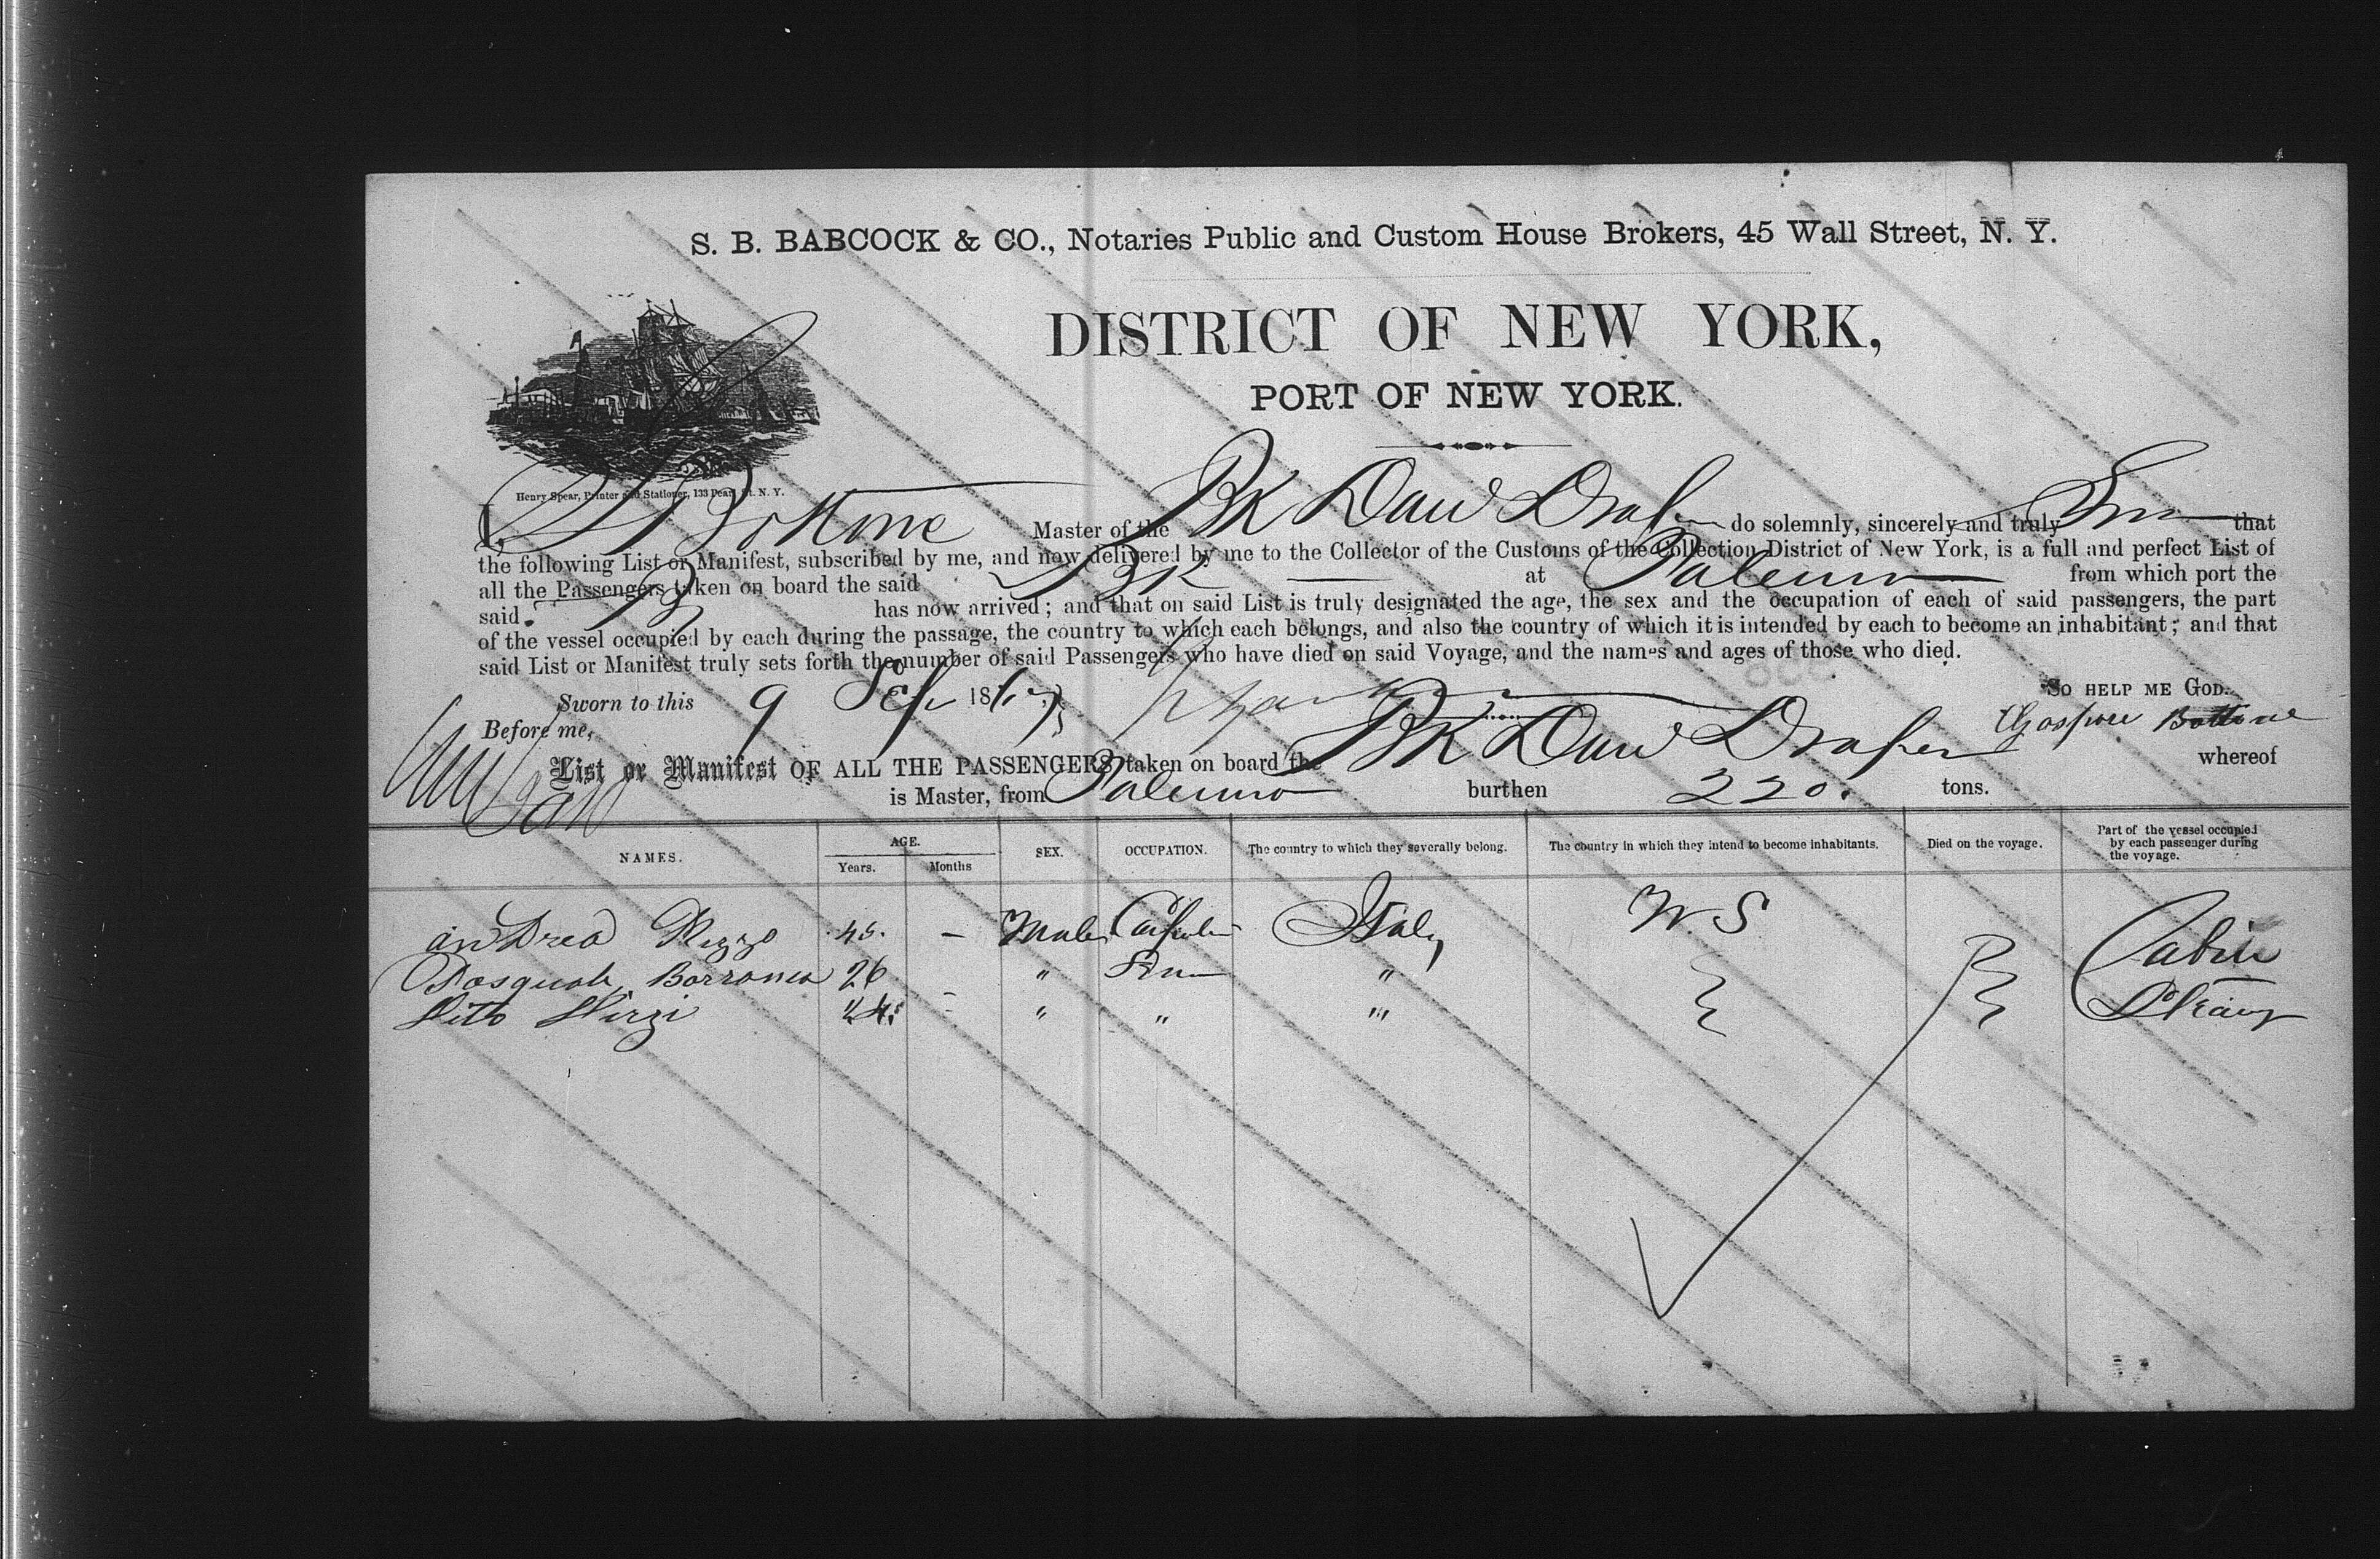 S. B. BABCOCK & CO., Notaries Public and Custom House Brokers, 45 Wall Street, N. Y.
DISTRICT OF NEW YORK,
PORT OF NEW YORK.
Henry Spear, Printer and Stationer, 133 Pearl St. N. Y.
I, Bottone Master of the Bk Draper do solemnly, sincerely and truly that
the following List or Manifest, subscribed by me, and now delivered by me to the Collector of the Customs of the Collection District of New York, is a full and perfect List of
all the Passengers taken on board the said Bk at Palermo from which port the
said B has now arrived; and that on said List is truly designated the age, the sex and the occupation of each of said passengers, the part
of the vessel occupied by each during the passage, the country to which each belongs, and also the country of which it is intended by each to become an inhabitant; and that
said List or Manifest truly sets forth the number of said Passengers who have died on said Voyage, and the names and ages of those who died.
SO HELP ME GOD.
Sworn to this 9 Sep 186
Before me, Bottone
List or Manifest OF ALL THE PASSENGERS taken on board the Bk Draper whereof
is Master, from Palermo burthen 220. tons.
NAMES. AGE. Years. Months SEX. OCCUPATION. The country to which they severally belong. The country in which they intend to become inhabitants. Died on the voyage. Part of the vessel occupied by each passenger during the voyage.
anDrea Rizzo 45. – Male Italy Cabin
Pasquale 26 – " "
Vito – " " "